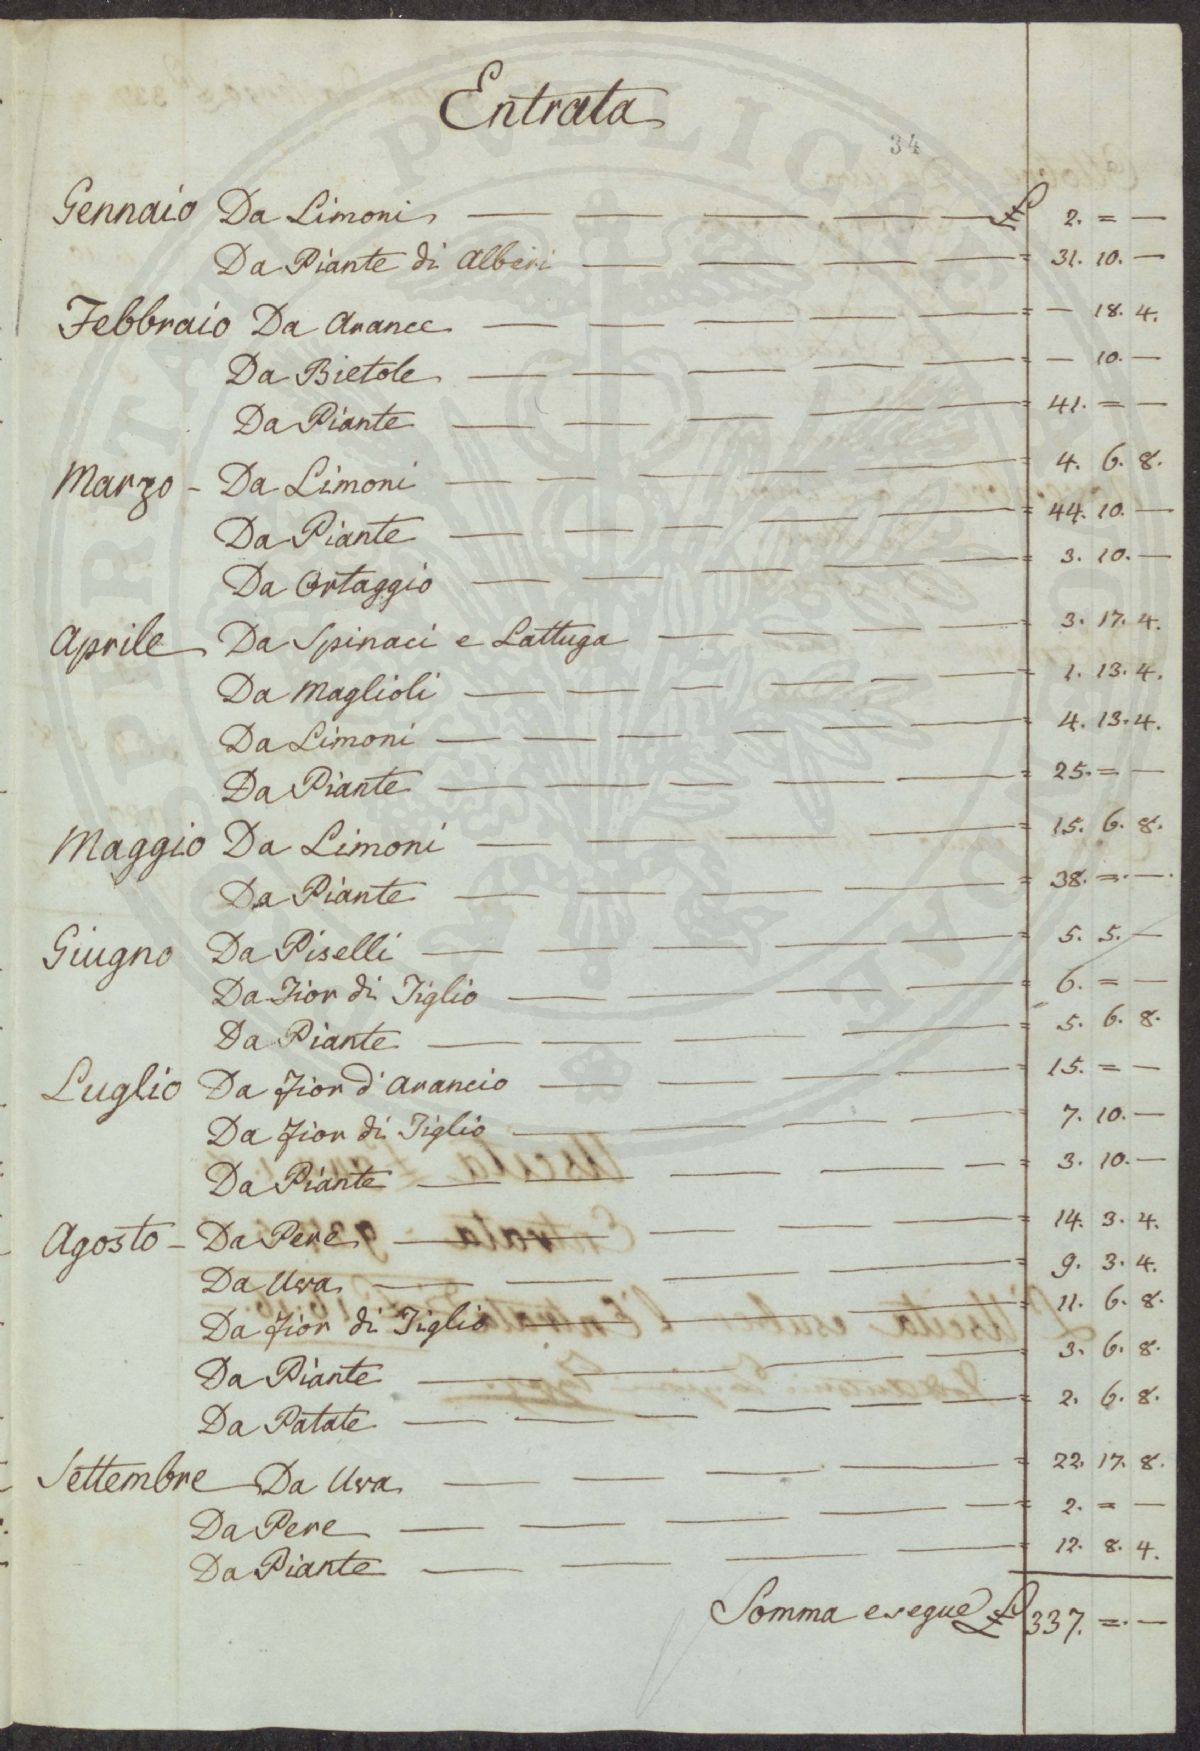 Entrata
34
Gennaio Da Limoni £ 2. = —
Da Piante di Alberi = 31. 10. —
Febbraio Da Arance = — 18. 4.
Da Bietole = — 10. —
Da Piante = 41. = —
Marzo - Da Limoni = 4. 6. 8.
Da Piante = 44. 10. —
Da Ortaggio = 3. 10. —
Aprile Da Spinaci e Lattuga = 3. 17. 4.
Da Maglioli = 1. 13. 4.
Da Limoni = 4. 13. 4.
Da Piante = 25. = —
Maggio Da Limoni = 15. 6. 8.
Da Piante = 38. = —
Giugno Da Piselli = 5. 5. —
Da Fior di Tiglio = 6. = —
Da Piante = 5. 6. 8.
Luglio Da Fior d'Arancio = 15. = —
Da Fior di Tiglio = 7. 10. —
Da Piante = 3. 10. —
Agosto - Da Pere = 14. 3. 4.
Da Uva = 9. 3. 4.
Da Fior di Tiglio = 11. 6. 8.
Da Piante = 3. 6. 8.
Da Patate = 2. 6. 8.
Settembre Da Uva = 22. 17. 8.
Da Pere = 2. = —
Da Piante = 12. 8. 4.
Somma e segue £ 337. = —